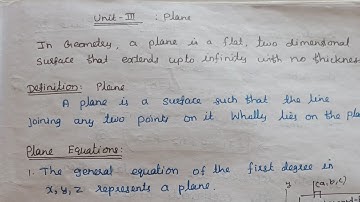 Unit-III : Plane
In Geometry, a plane is a flat, two dimensional
surface that extends upto infinity with no thickness
Definition: Plane
A plane is a surface such that the line
joining any two points on it Wholly lies on the pla
Plane Equations:
1. The general equation of the first degree in
x, y, z represents a plane.
y (a, b, c)